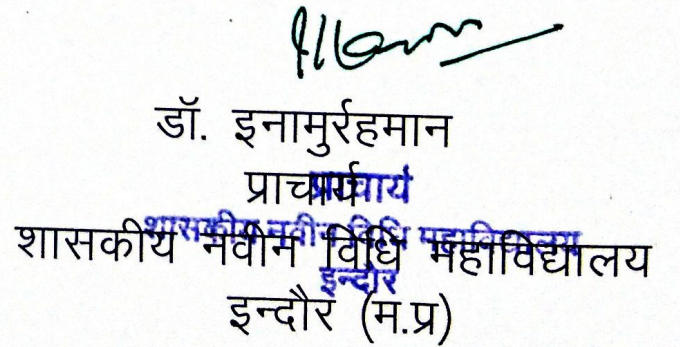 डॉ. इनामुर्रहमान
प्राचार्य
प्राचार्य
शासकीय नवीन विधि महाविद्यालय
शासकीय नवीन विधि महाविद्यालय
इन्दौर
इन्दौर (म.प्र)